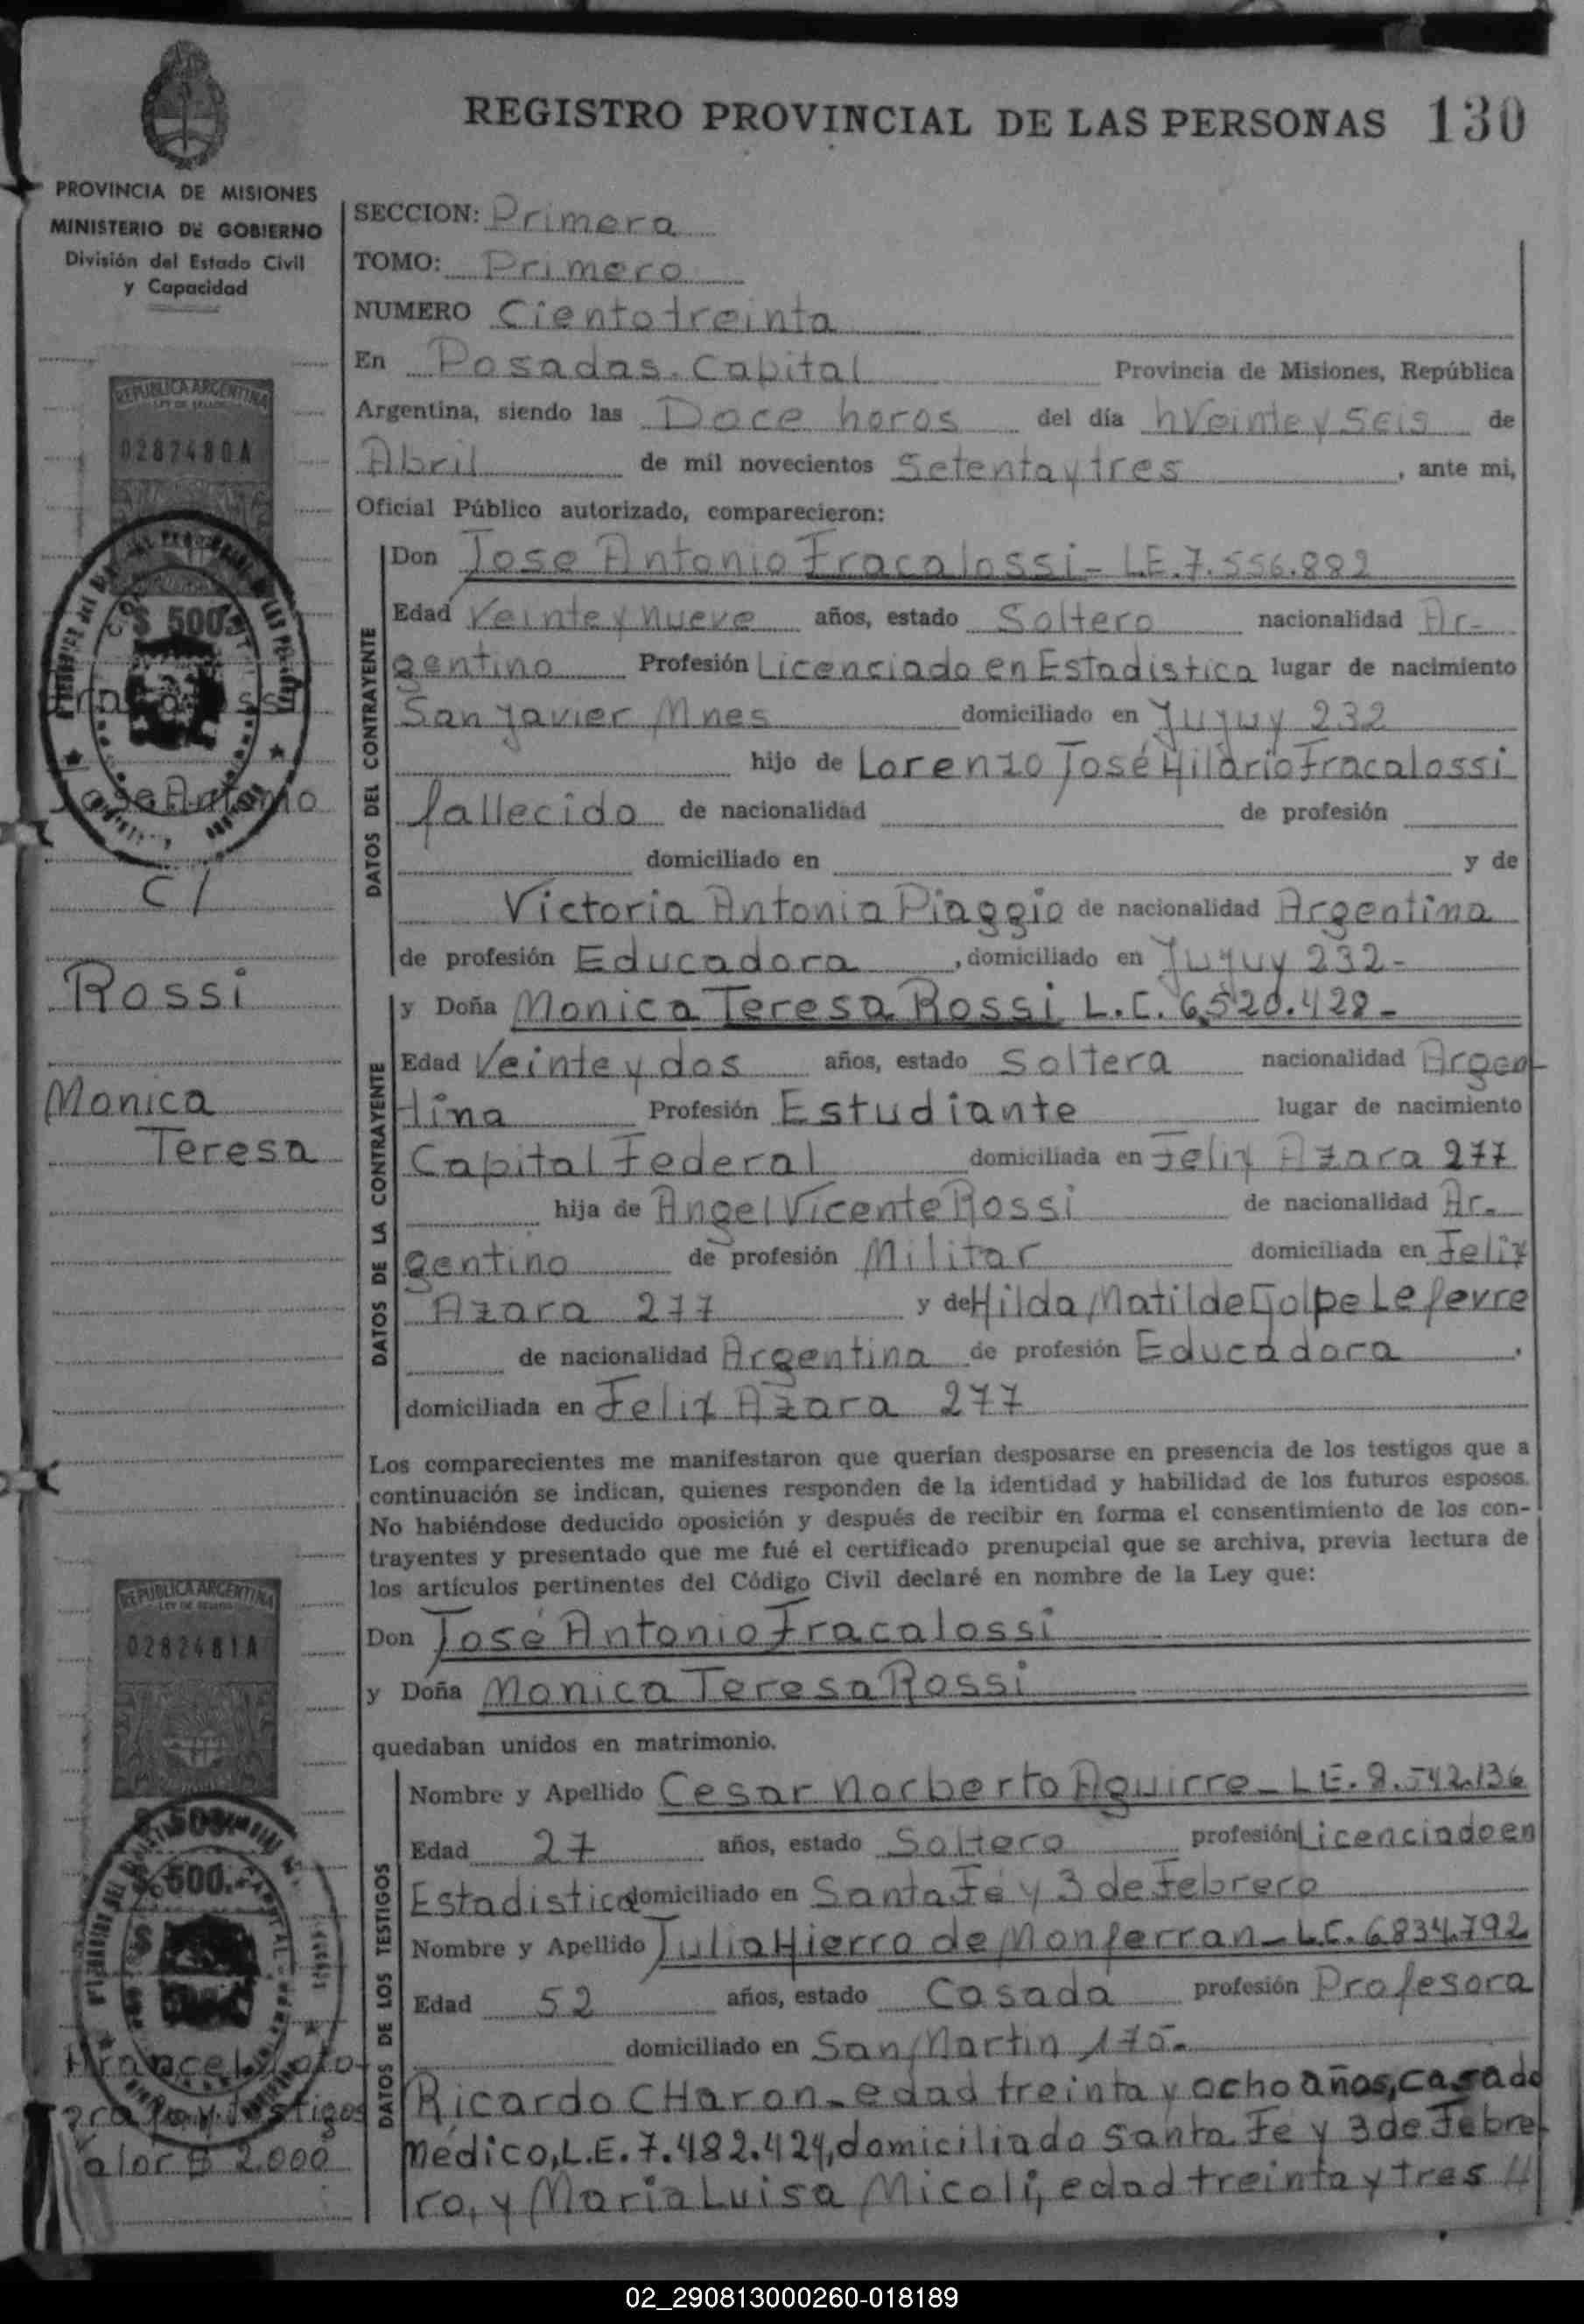 REGISTRO PROVINCIAL DE LAS PERSONAS 130
PROVINCIA DE MISIONES
MINISTERIO DE GOBIERNO
División del Estado Civil
y Capacidad
SECCION: Primera
TOMO: Primero
NUMERO Ciento treinta
En Posadas. Capital Provincia de Misiones, República
Argentina, siendo las Doce horas del día hVeinte y Seis de
Abril de mil novecientos Setenta y tres, ante mi,
Oficial Público autorizado, comparecieron:
DATOS DEL CONTRAYENTE
Don Jose Antonio Fracalossi - L.E. 7.556.882
Edad Veinte y nueve años, estado Soltero nacionalidad Ar-
gentino Profesión Licenciado en Estadistica lugar de nacimiento
San Javier Mnes domiciliado en Jujuy 232
hijo de Lorenzo José Hilario Fracalossi
fallecido de nacionalidad de profesión
domiciliado en y de
Victoria Antonia Piaggio de nacionalidad Argentina
de profesión Educadora, domiciliado en Jujuy 232-
DATOS DE LA CONTRAYENTE
y Doña Monica Teresa Rossi L.C. 6.520.428-
Edad Veinte y dos años, estado Soltera nacionalidad Argen-
tina Profesión Estudiante lugar de nacimiento
Capital Federal domiciliada en Felix Azara 277
hija de Angel Vicente Rossi de nacionalidad Ar-
gentino de profesión Militar domiciliada en Felix
Azara 277 y de Hilda Matilde Golpe Lefevre
de nacionalidad Argentina de profesión Educadora.
domiciliada en Felix Azara 277
Los comparecientes me manifestaron que querían desposarse en presencia de los testigos que a
continuación se indican, quienes responden de la identidad y habilidad de los futuros esposos.
No habiéndose deducido oposición y después de recibir en forma el consentimiento de los con-
trayentes y presentado que me fué el certificado prenupcial que se archiva, previa lectura de
los artículos pertinentes del Código Civil declaré en nombre de la Ley que:
Don José Antonio Fracalossi
y Doña Monica Teresa Rossi
quedaban unidos en matrimonio.
DATOS DE LOS TESTIGOS
Nombre y Apellido Cesar Norberto Aguirre - L.E. 8.542.136
Edad 27 años, estado Soltero profesión Licenciado en
Estadistica domiciliado en Santa Fé y 3 de Febrero
Nombre y Apellido Julia Hierro de Monferran - L.C. 6834.792
Edad 52 años, estado Casada profesión Profesora
domiciliado en San Martin 175-
Ricardo CHaron - edad treinta y ocho años, casado
médico, L.E. 7.482.424, domiciliado Santa Fe y 3 de Febre-
ro, y Maria Luisa Micoli, edad treinta y tres //
REPUBLICA ARGENTINA
LEY DE SELLOS
0282480A
$ 500
Fracalossi
Jose Antonio
C/
Rossi
Monica
Teresa
REPUBLICA ARGENTINA
LEY DE SELLOS
0282481A
$ 500.-
Valor $ 2.000
02_290813000260-018189